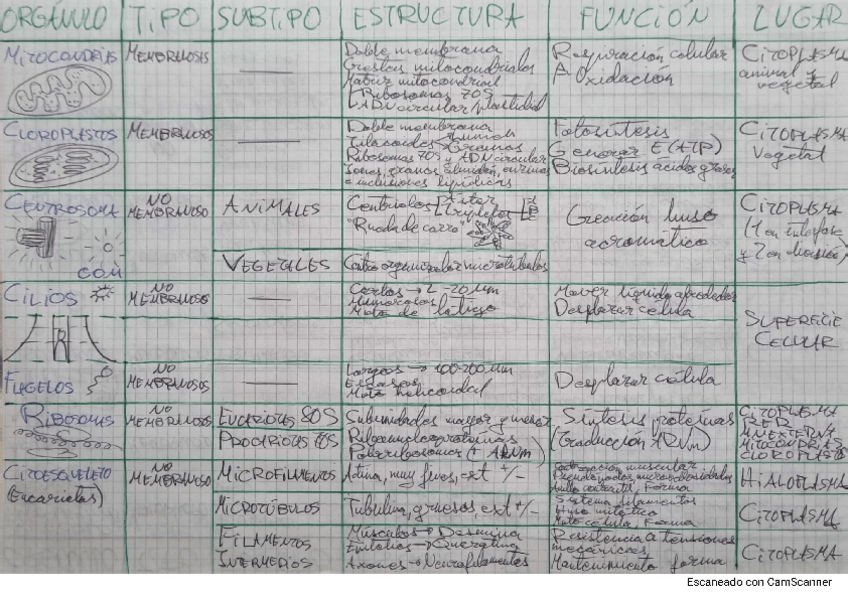 ORGÁNULO TIPO SUBTIPO ESTRUCTURA FUNCIÓN LUGAR
MITOCONDRIAS MEMBRANOSOS
Doble membrana
Crestas mitocondriales
Matriz mitocondrial
Ribosomas 70S
ADN circular/plastidial
Respiración celular
Oxidación
CITOPLASMA
animal y
vegetal
CLOROPLASTOS MEMBRANOSOS
Doble membrana
Tilacoides Lumen
Granas
Ribosomas 70S y ADN circular
granos almidón, enzimas
e inclusiones lipídicas
Fotosíntesis
Generar E (ATP)
Biosíntesis ácidos grasos
CITOPLASMA
Vegetal
CENTROSOMA
COM
NO
MEMBRANOSO
ANIMALES
Centriolos Áster
Tripletes
"Rueda de carro"
Creación huso
acromático
CITOPLASMA
(1 en interfase
y 2 en división)
VEGETALES
Centro organizador microtúbulos
CILIOS
NO
MEMBRANOSOS
Cortos → 2-20 μm
Numerosos
Mov de látigo
Mover líquido alrededor
Desplazar célula
SUPERFICIE
CELULAR
FLAGELOS
NO
MEMBRANOSOS
Largos → 100-200 μm
Escasos
Mov helicoidal
Desplazar célula
RIBOSOMAS
NO
MEMBRANOSOS
EUCARIOTAS 80S
PROCARIOTAS 70S
Subunidades mayor y menor
Ribonucleoproteínas
Polirribosomas (+ ARNm)
Síntesis proteínas
(Traducción ARNm)
CITOPLASMA
RER
M.N EXTERNA
MITOCONDRIAS
CLOROPLASTOS
CITOESQUELETO
(Eucariotas)
NO
MEMBRANOSO
MICROFILAMENTOS
Actina, muy finos, ext +/-
Contracción muscular
Pseudópodos microvellosidades
Anillo contráctil, Forma
HIALOPLASMA
MICROTÚBULOS
Tubulina, gruesos, ext +/-
Sistema filamentos
Huso mitótico
Mov célula, Forma
CITOPLASMA
FILAMENTOS
INTERMEDIOS
Músculos → Desmina
Epitelios → Queratina
Axones → Neurofilamentos
Resistencia a tensiones
mecánicas
Mantenimiento forma
CITOPLASMA
Escaneado con CamScanner